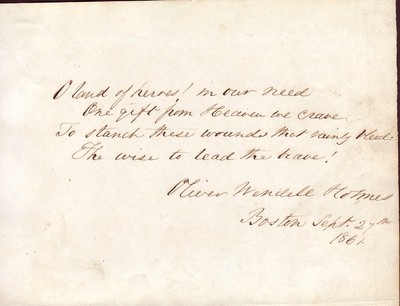 O land of heroes! in our need
One gift from Heaven we crave
To stanch these wounds that vainly bleed
The wise to lead the brave!
Oliver Wendell Holmes
Boston Sept. 27th
1861.